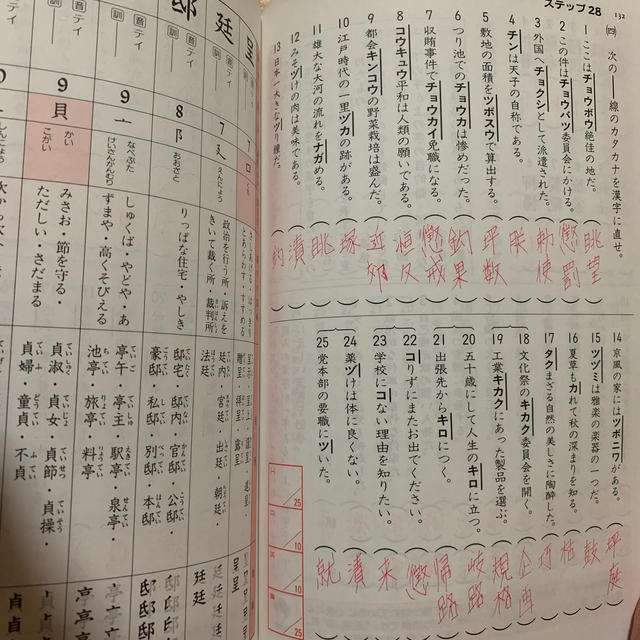 ステップ28
132
(四) 次の――線のカタカナを漢字に直せ。
1 ここはチョウボウ絶佳の地だ。
眺望
2 この件はチョウバツ委員会にかける。
懲罰
3 外国へチョクシとして派遣された。
勅使
4 チンは天子の自称である。
朕
5 敷地の面積をツボスウで算出する。
坪数
6 つり池でのチョウカは惨めだった。
釣果
7 収賄事件でチョウカイ免職になる。
懲戒
8 コウキュウ平和は人類の願いである。
恒久
9 都会キンコウの野菜栽培は盛んだ。
近郊
10 江戸時代の一里ヅカの跡がある。
塚
11 雄大な大河の流れをナガめる。
眺
12 みそヅけの肉は美味である。
漬
13 日本一大きなツり鐘だ。
14 京風の家にはツボニワがある。
坪庭
15 ツヅミは雅楽の楽器の一つだ。
鼓
16 夏草もカれて秋の深まりを知る。
枯
17 タクまざる自然の美しさに陶酔した。
巧
18 文化祭のキカク委員会を開く。
企画
19 工業キカクにあった製品を選ぶ。
規格
20 五十歳にして人生のキロに立つ。
岐路
21 出張先からキロにつく。
帰路
22 コりずにまたお出てください。
懲
23 学校にコない理由を知りたい。
来
24 薬ヅけは体に良くない。
漬
25 党本部の要職にツいた。
就
25
10
10
25
呈
廷
邸
音 テイ
訓
音 テイ
訓
音 テイ
訓
7
口
くち
7
廴
えんにょう
政治を行う所・訴えをきいて裁く所・裁判所
廷内・宮廷・出廷・朝廷・法廷
8
阝
おおざと
りっぱな住宅・やしき
邸宅・邸内・官邸・公邸・豪邸・私邸・別邸・本邸
9
亠
なべぶた
けいさんかんむり
しゅくば・やどや・あずまや・高くそびえる
亭午・亭主・駅亭・泉亭・池亭・旅亭・料亭
9
貝
かい
こがい
みさお・節を守る・ただしい・さだまる
貞淑・貞女・貞節・貞操・貞婦・童貞・不貞